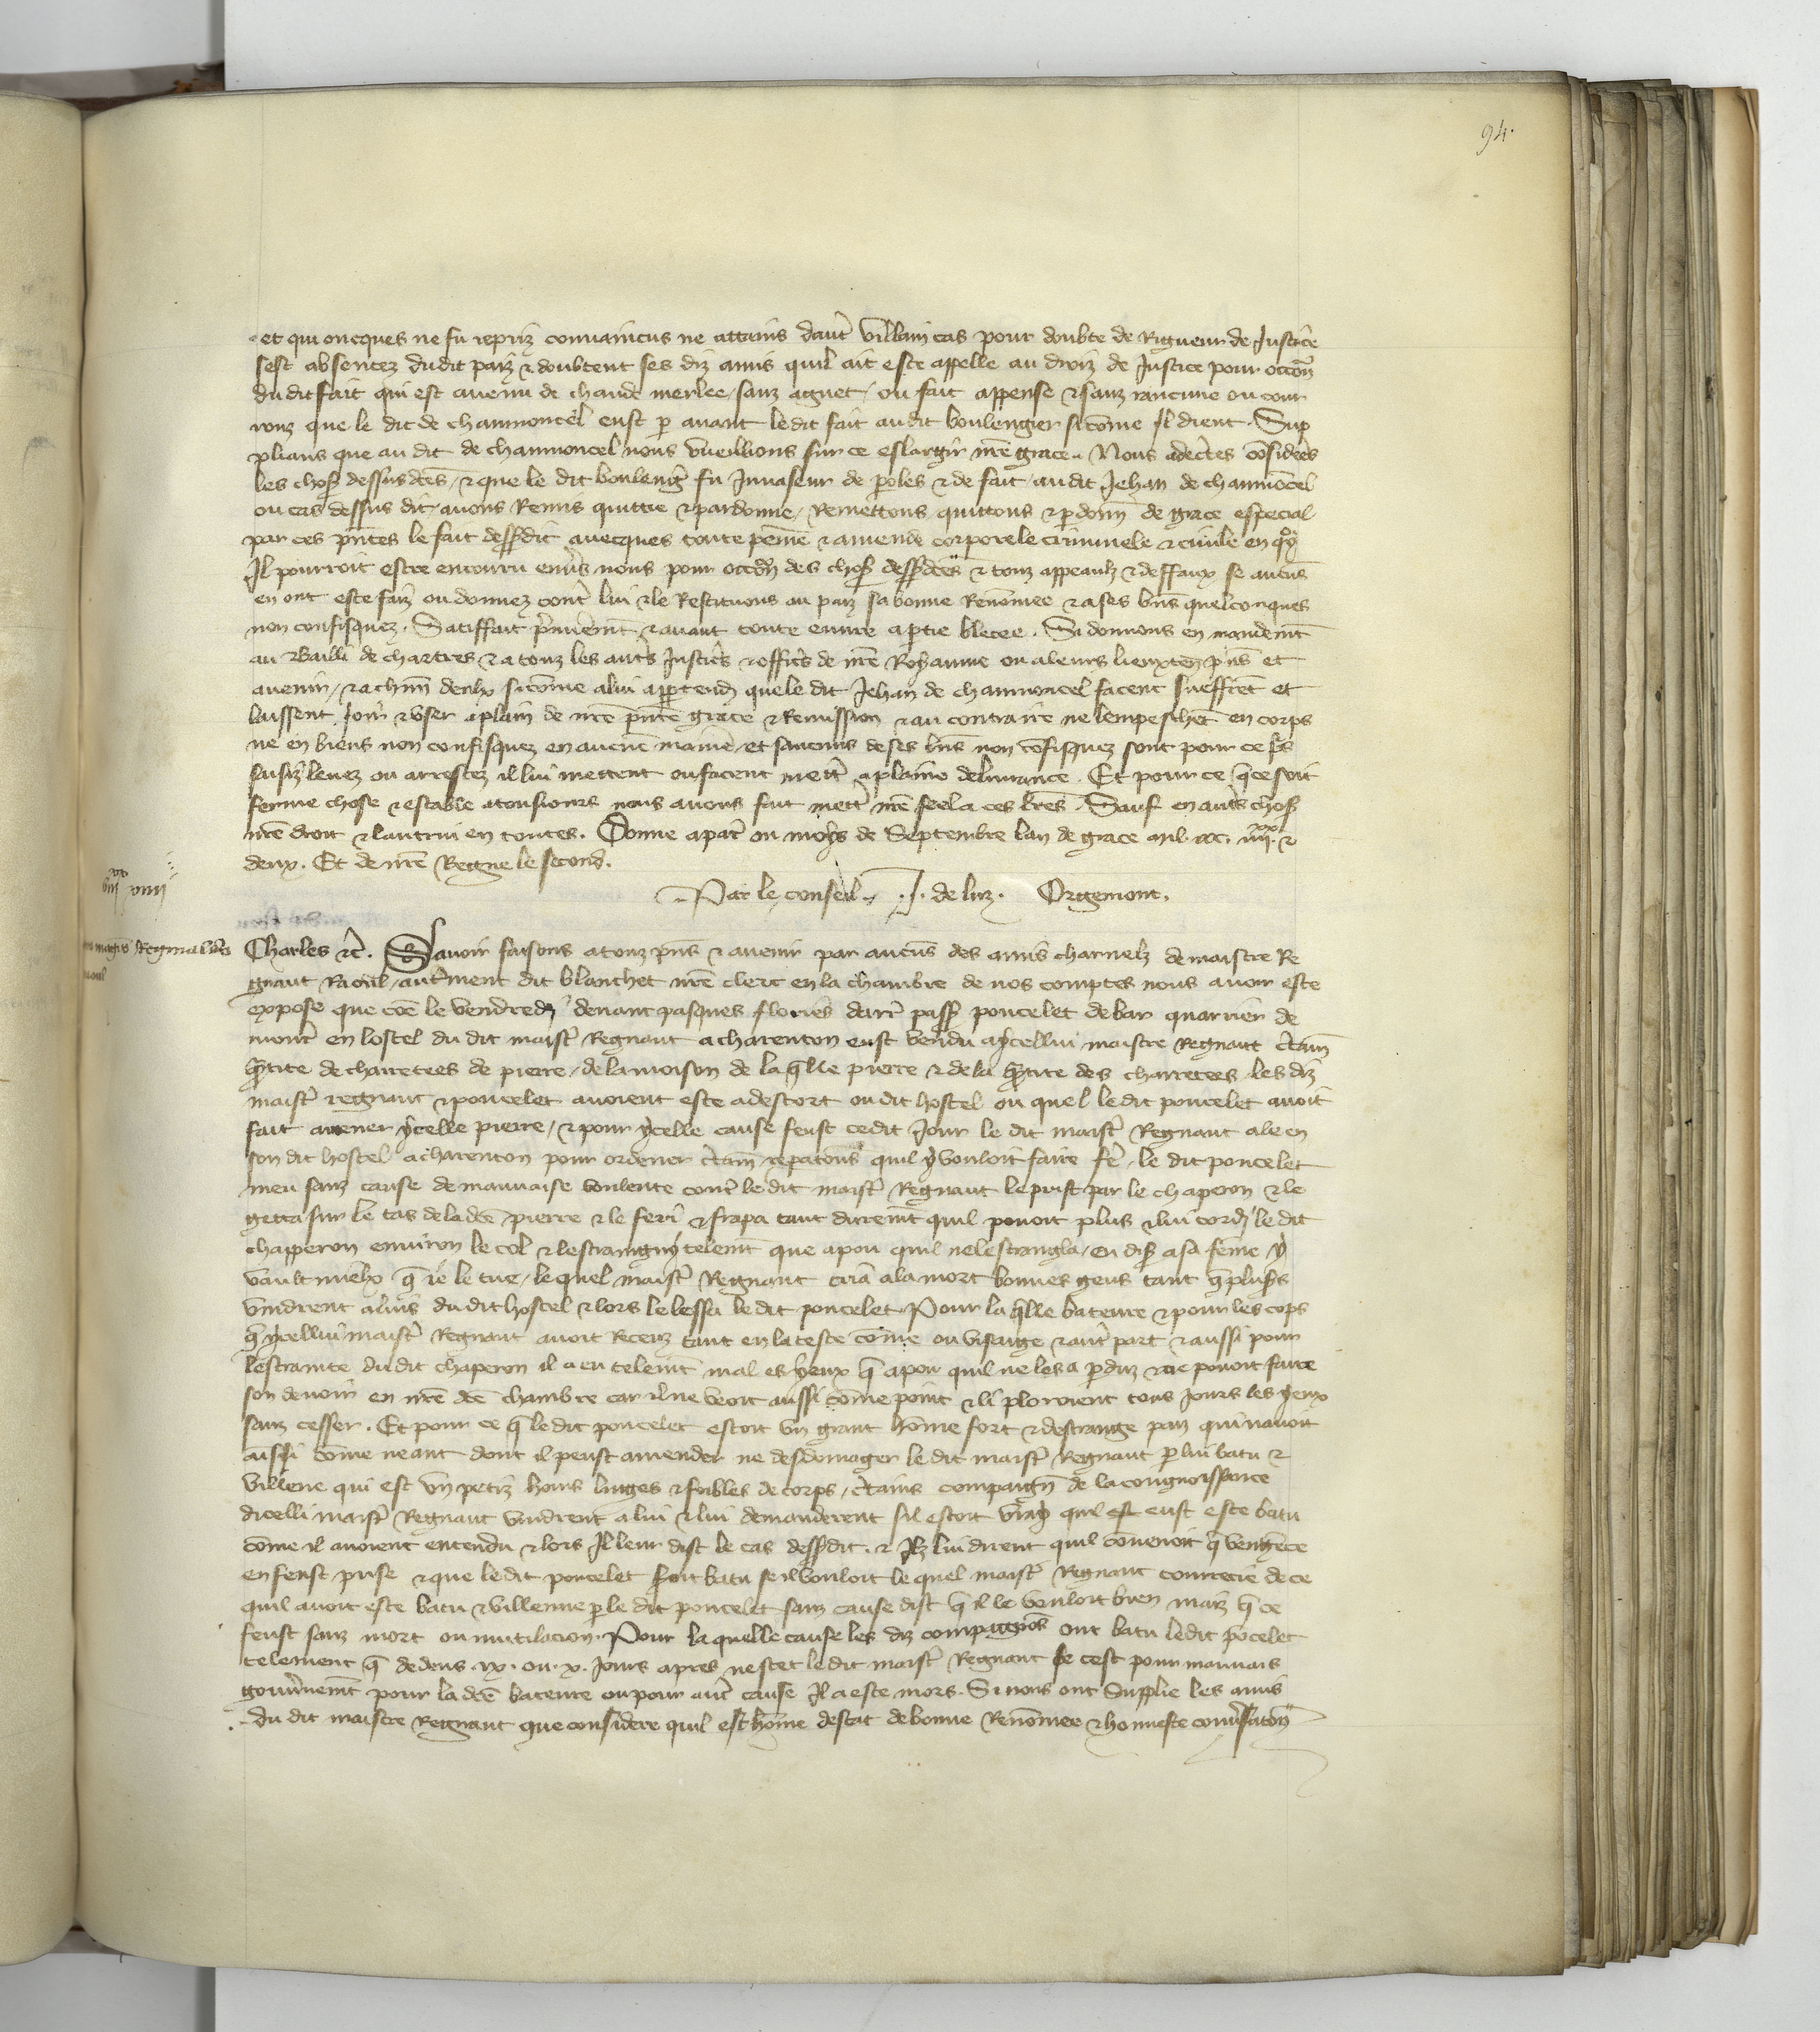 94.
et qui oncques ne fu repris convaincus ne attains daut villain cas pour doubte de Rigueur de Justice
sest absentez dudit paiz & doubtent ses diz amis quil ait este appelle au droiz de Justice pour occon
du dit fait qui est avenu de chaude merlee sanz aguet ou fait appense & sanz rancune ou cour
rouz que le dit de chamoncel eust p avant ledit fait audit boulengier si come Il dient. Sup
plians que au dit de chamoncel nous vueillions sur ce eslargir nre grace. Nous adcertes consideres
les choses dessusdces & que le dit bouleng fu Invaseur de poles & de fait audit Jehan de chamoncel
ou cas dessus dit avons Remis quittie & pardonne Remettons quittons & pdonn de grace especial
par ces pntes le fait dessdit avecques toute peine & amende corporele criminele & civile en q
Il pourroit estre encouru envs nous pour occon des choses dessdces & touz appeaulz & deffaux se aucus
en ont este faiz ou donnez cont lui & le Restituons au paiz sa bonne Renomee & a ses bns quelconques
non confisquez. Satiffait pmieremt & avant toute euvre a ptie blecee. Si donnons en mandemt
au Bailli de chartres & a touz les auts Justics & offics de nre Royaume ou a leurs lieuxten pns et
avenir & a chun deulx si come a lui apptend que le dit Jehan de chamoncel facent suefffrent et
laissent Joir & user a plain de nre pnte grace & Remission & au contraire ne lempeschet en corps
ne en biens non confisquez en aucune maniere et saucuns de ses bns non cofisquez sont pour ce ps
saisiz levez ou arrestez il lui mettent ou facent mett a plaine delivrance. Et pour ce q ce soit
ferme chose & estable a tousiours nous avons fait mett nre seel a ces lres. Sauf en auts choses
nre droit & lautrui en toutes. Donne a par ou moys de Septembre lan de grace mil. ccc. iiii xx. &
deux. Et de nre Regne le second.
Par le conseil. J. de luz. Orgemont.
magro Reginaldo
Charles &c. Savoir faisons a touz pns & avenir par aucus des amis charnelz de maistre Re
gnaut Raoul autrement dit blanchet nre clerc en la chambre de nos comptes nous avoir este
expose que coe le vendredi devant pasques flories darr passe poncelet de bar quarrier de
mont en lostel du dit maist Regnaut a charenton eust vendu a ycellui maistre Regnaut ctain
qtite de charretees de pierre de la moison de la qlle pierre & de la qtite des charretees les diz
maist regnaut & poncelet avoient este a descort ou dit hostel ou quel le dit poncelet avoit
fait amener ycelle pierre & pour ycelle cause feust cedit Jour le dit maist Regnaut ale en
son dit hostel a charenton pour ordener ctain repacons quil y vouloit faire fe le dit poncelet
meu sanz cause de mauvaise voulente cont le dit maist Regnaut le prist par le chaperon & le
getta sur le tas de la dce pierre & le feri & frapa tant duremt quil povoit plus & lui tordi le dit
chapperon environ le col & lestraingny telemt que a pou quil ne lestrangla en dis a sa feme y
vault mielx q ie le tue le quel maist Regnaut cria a la mort bonnes gens tant q pluss
vindrent a luis du dit hostel & lors le lessa le dit poncelet. Pour la qlle bateure & pour les cops
q ycellui maist Regnaut avoit Receuz tant en la teste come ou visaige & aut part & aussi pour
lestrainte du dit chaperon il a eu telemt mal es yeux q a pou quil ne les a pduz & ne povoit faire
son devoir en nre dce chambre car il ne veoit aussi come point & li ploroient tous Jours les yeux
sanz cesser. Et pour ce q le dit poncelet estoit un grant home fort & destrange paiz qui navoit
aussi come neant dont il peust amender ne desdomager le dit maist Regnaut p lui batu &
villene qui est un petiz homs linges & foibles de corps ctains compaign de la congnoissance
dicelli maist Regnaut vindrent a lui & lui demanderent sil estoit vray quil eust este batu
come il avoient entendu & lors Il leur dist le cas dessdit & Ilz lui dirent quil covenoit q vengece
en feust prise & que le dit poncelet seroit batu se il vouloit le quel maist Regnaut courrecie de ce
quil avoit este batu & villenne p le dit poncelet sanz cause dist q il le vouloit bien maiz q ce
feust sanz mort ou mutilacion. Pour la quelle cause les diz compaignos ont batu ledit pocelet
telement q dedens .ix. ou .x. Jours apres ne scet le dit maist Regnaut se cest pour mauvais
gouvnemt pour la dce bateure ou pour aut cause Il a este mors. Si nous ont Supplie les amis
du dit maistre Regnaut que considere quil est home destat de bonne Renomee & honneste convsacon